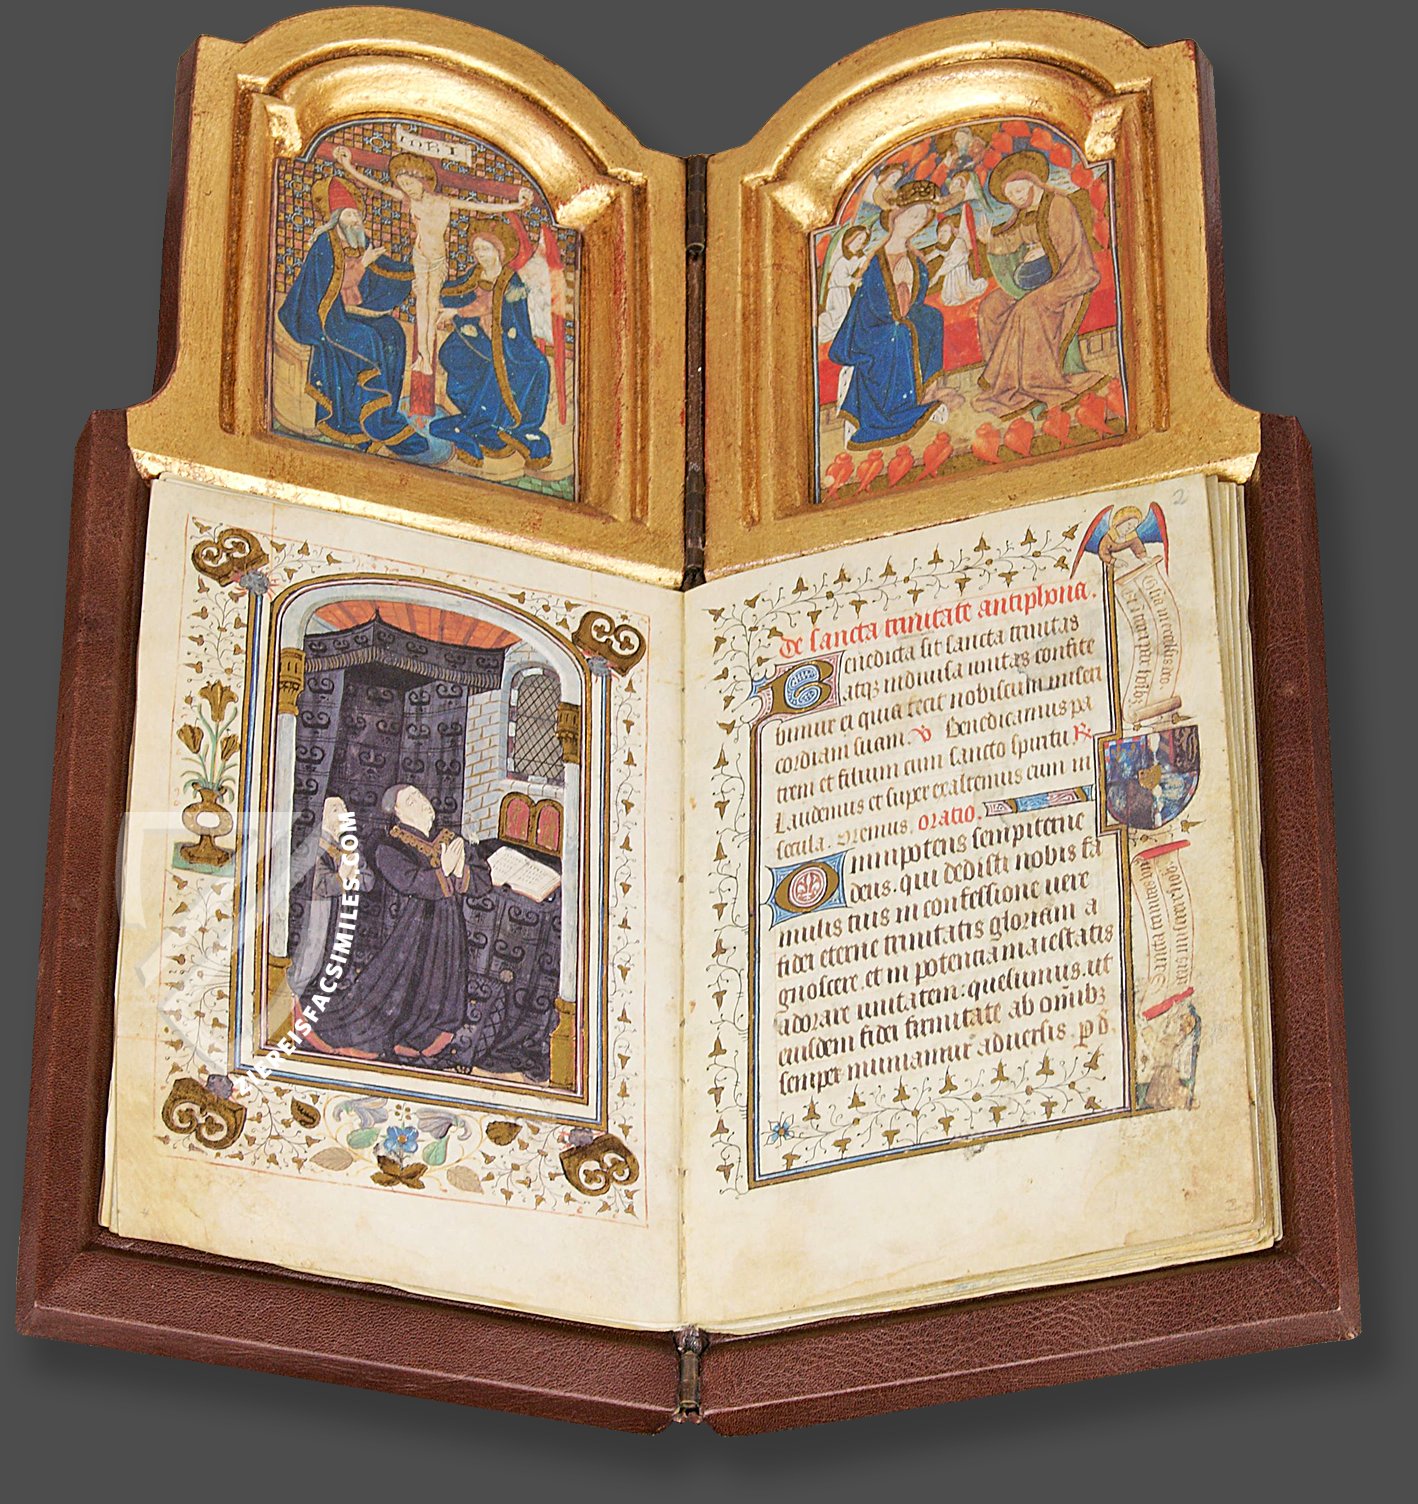 2
de sancta trinitate antiphona.
Benedicta sit sancta trinitas
atqꝫ indiuisa unitas confite
bimur ei quia fecit nobiscum miseri
cordiam suam. V Benedicamus pa
trem et filium cum sancto spiritu R
Laudemus et super exaltemus eum in
secula. Oremus. oratio.
Omnipotens sempiterne
deus. qui dedisti nobis fa
mulis tuis in confessione uere
fidei eterne trinitatis gloriam a
gnoscere. et in potencia maiestatis
adorare unitatem: quesumus. ut
eiusdem fidei firmitate ab omībꝫ
semper muniamur aduersis. p d.
ZIEREISFACSIMILES.COM